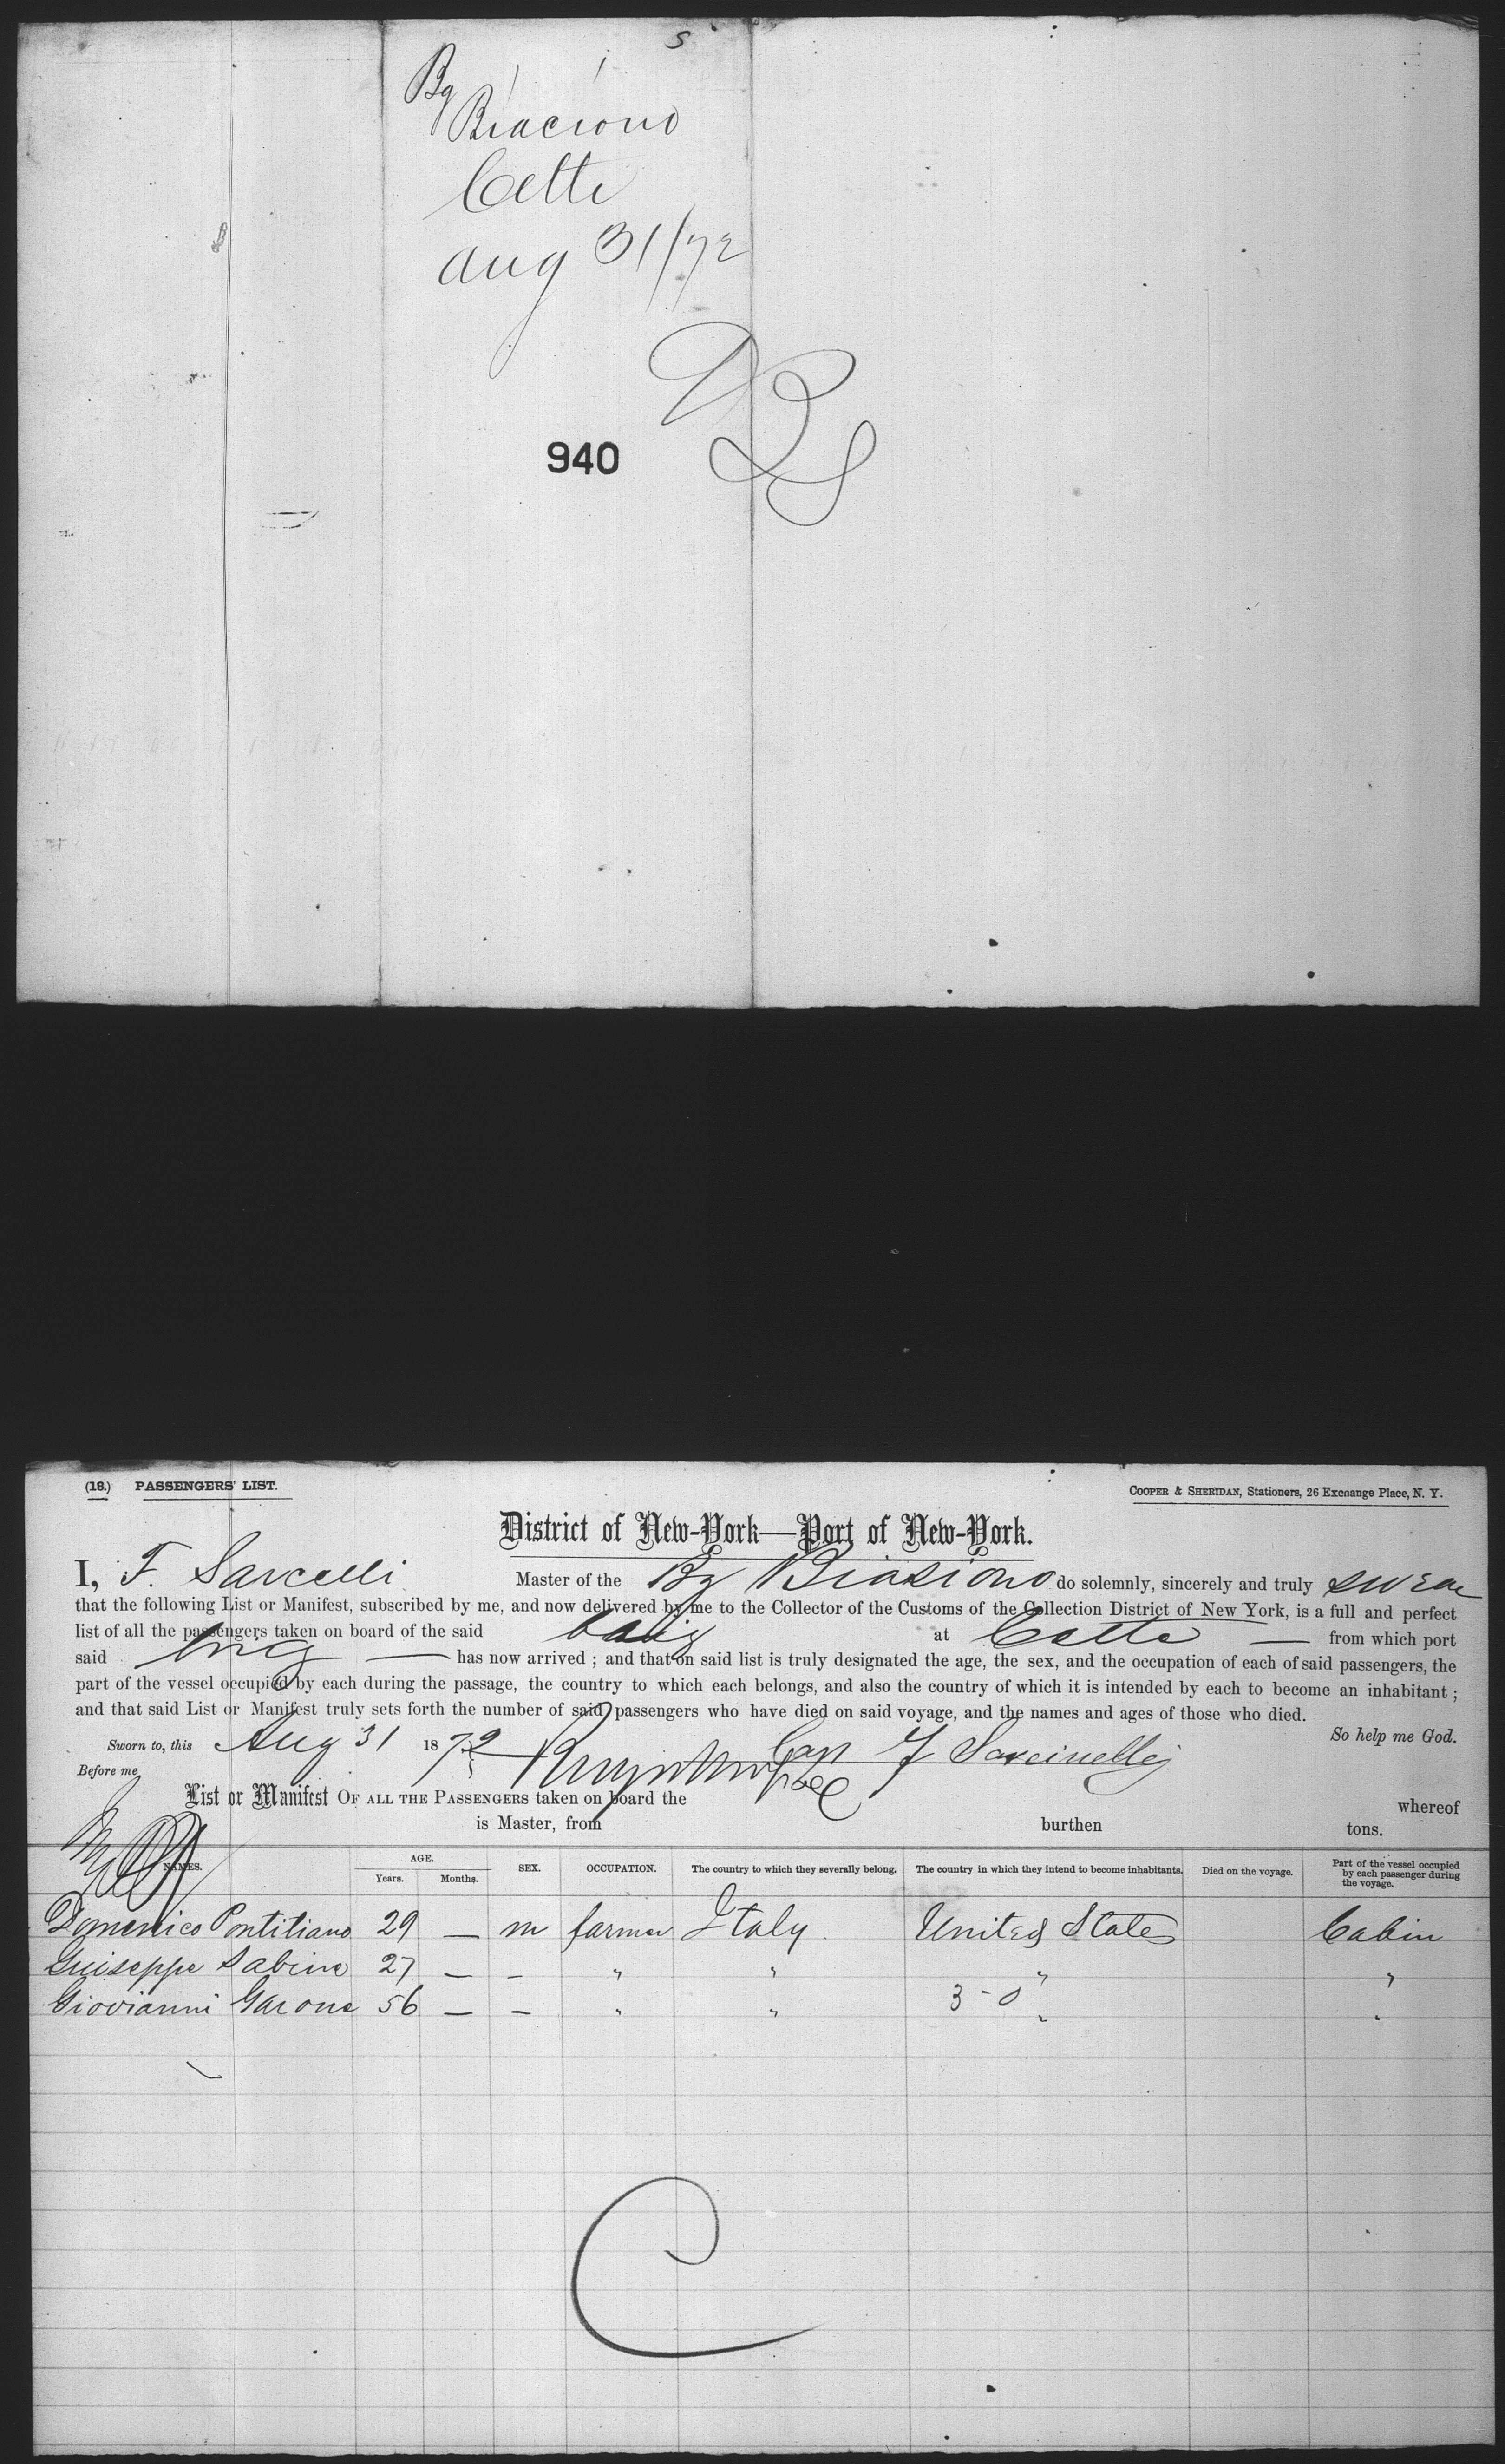 s
Bg
Biaciono
Cette
Aug 31/72
940
(18.) PASSENGERS' LIST.
COOPER & SHERIDAN, Stationers, 26 Exchange Place, N. Y.
District of New-York—Port of New-York.
I, F. Sarcelli Master of the Bg Biasiono do solemnly, sincerely and truly swear
that the following List or Manifest, subscribed by me, and now delivered by me to the Collector of the Customs of the Collection District of New York, is a full and perfect
list of all the passengers taken on board of the said at Cette — from which port
said brig — has now arrived ; and that on said list is truly designated the age, the sex, and the occupation of each of said passengers, the
part of the vessel occupied by each during the passage, the country to which each belongs, and also the country of which it is intended by each to become an inhabitant ;
and that said List or Manifest truly sets forth the number of said passengers who have died on said voyage, and the names and ages of those who died.
So help me God.
Sworn to, this Aug 31 1872 Cap F Sarcinelli
Before me
List or Manifest OF ALL THE PASSENGERS taken on board the whereof
is Master, from burthen tons.
NAMES. AGE. Years. Months. SEX. OCCUPATION. The country to which they severally belong. The country in which they intend to become inhabitants. Died on the voyage. Part of the vessel occupied by each passenger during the voyage.
Domenico Pontitiano 29 — m farmer Italy United States Cabin
Guiseppe Sabino 27 — – " " " "
Giovianni Garone 56 — – " " " "
3 - 0
C